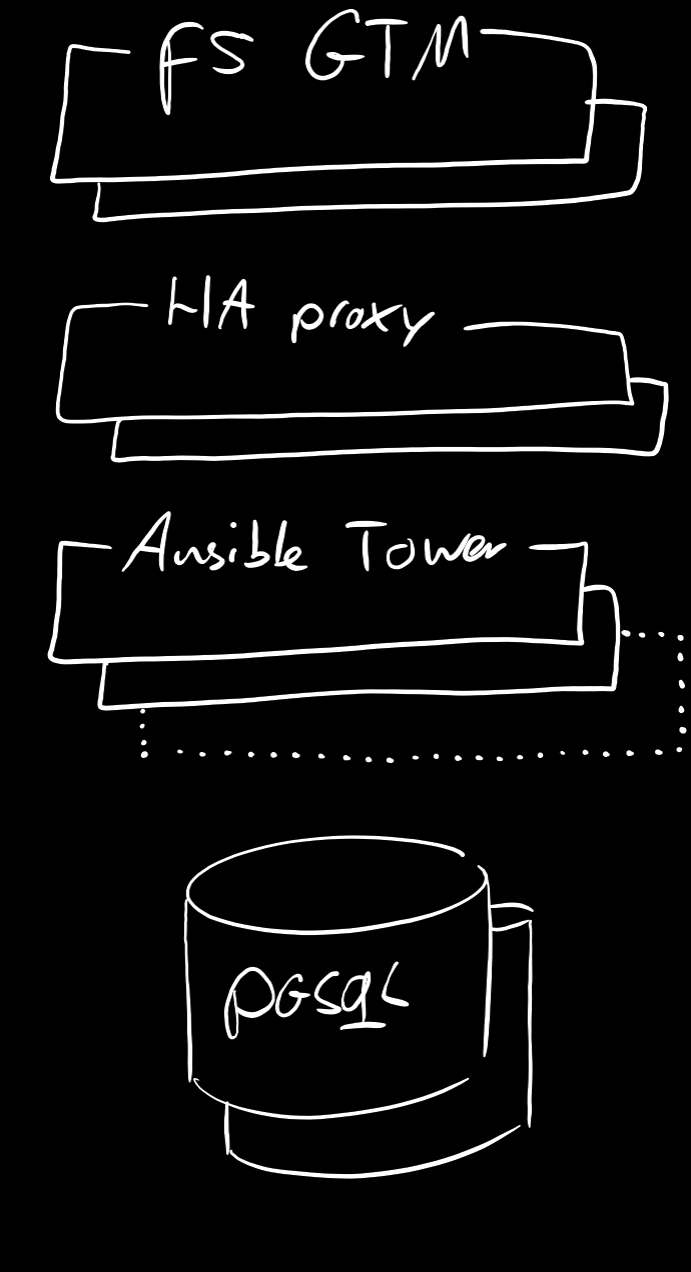 F5 GTM
HA proxy
Ansible Tower
PGSQL